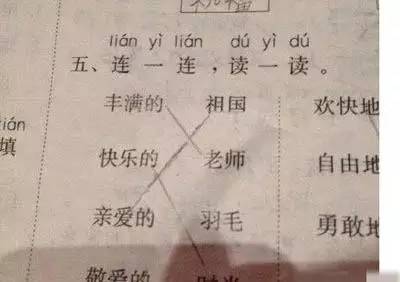 lián yì lián dú yì dú
五、连一连，读一读。
丰满的 祖国 欢快地
快乐的 老师 自由地
填
亲爱的 羽毛 勇敢地
敬爱的